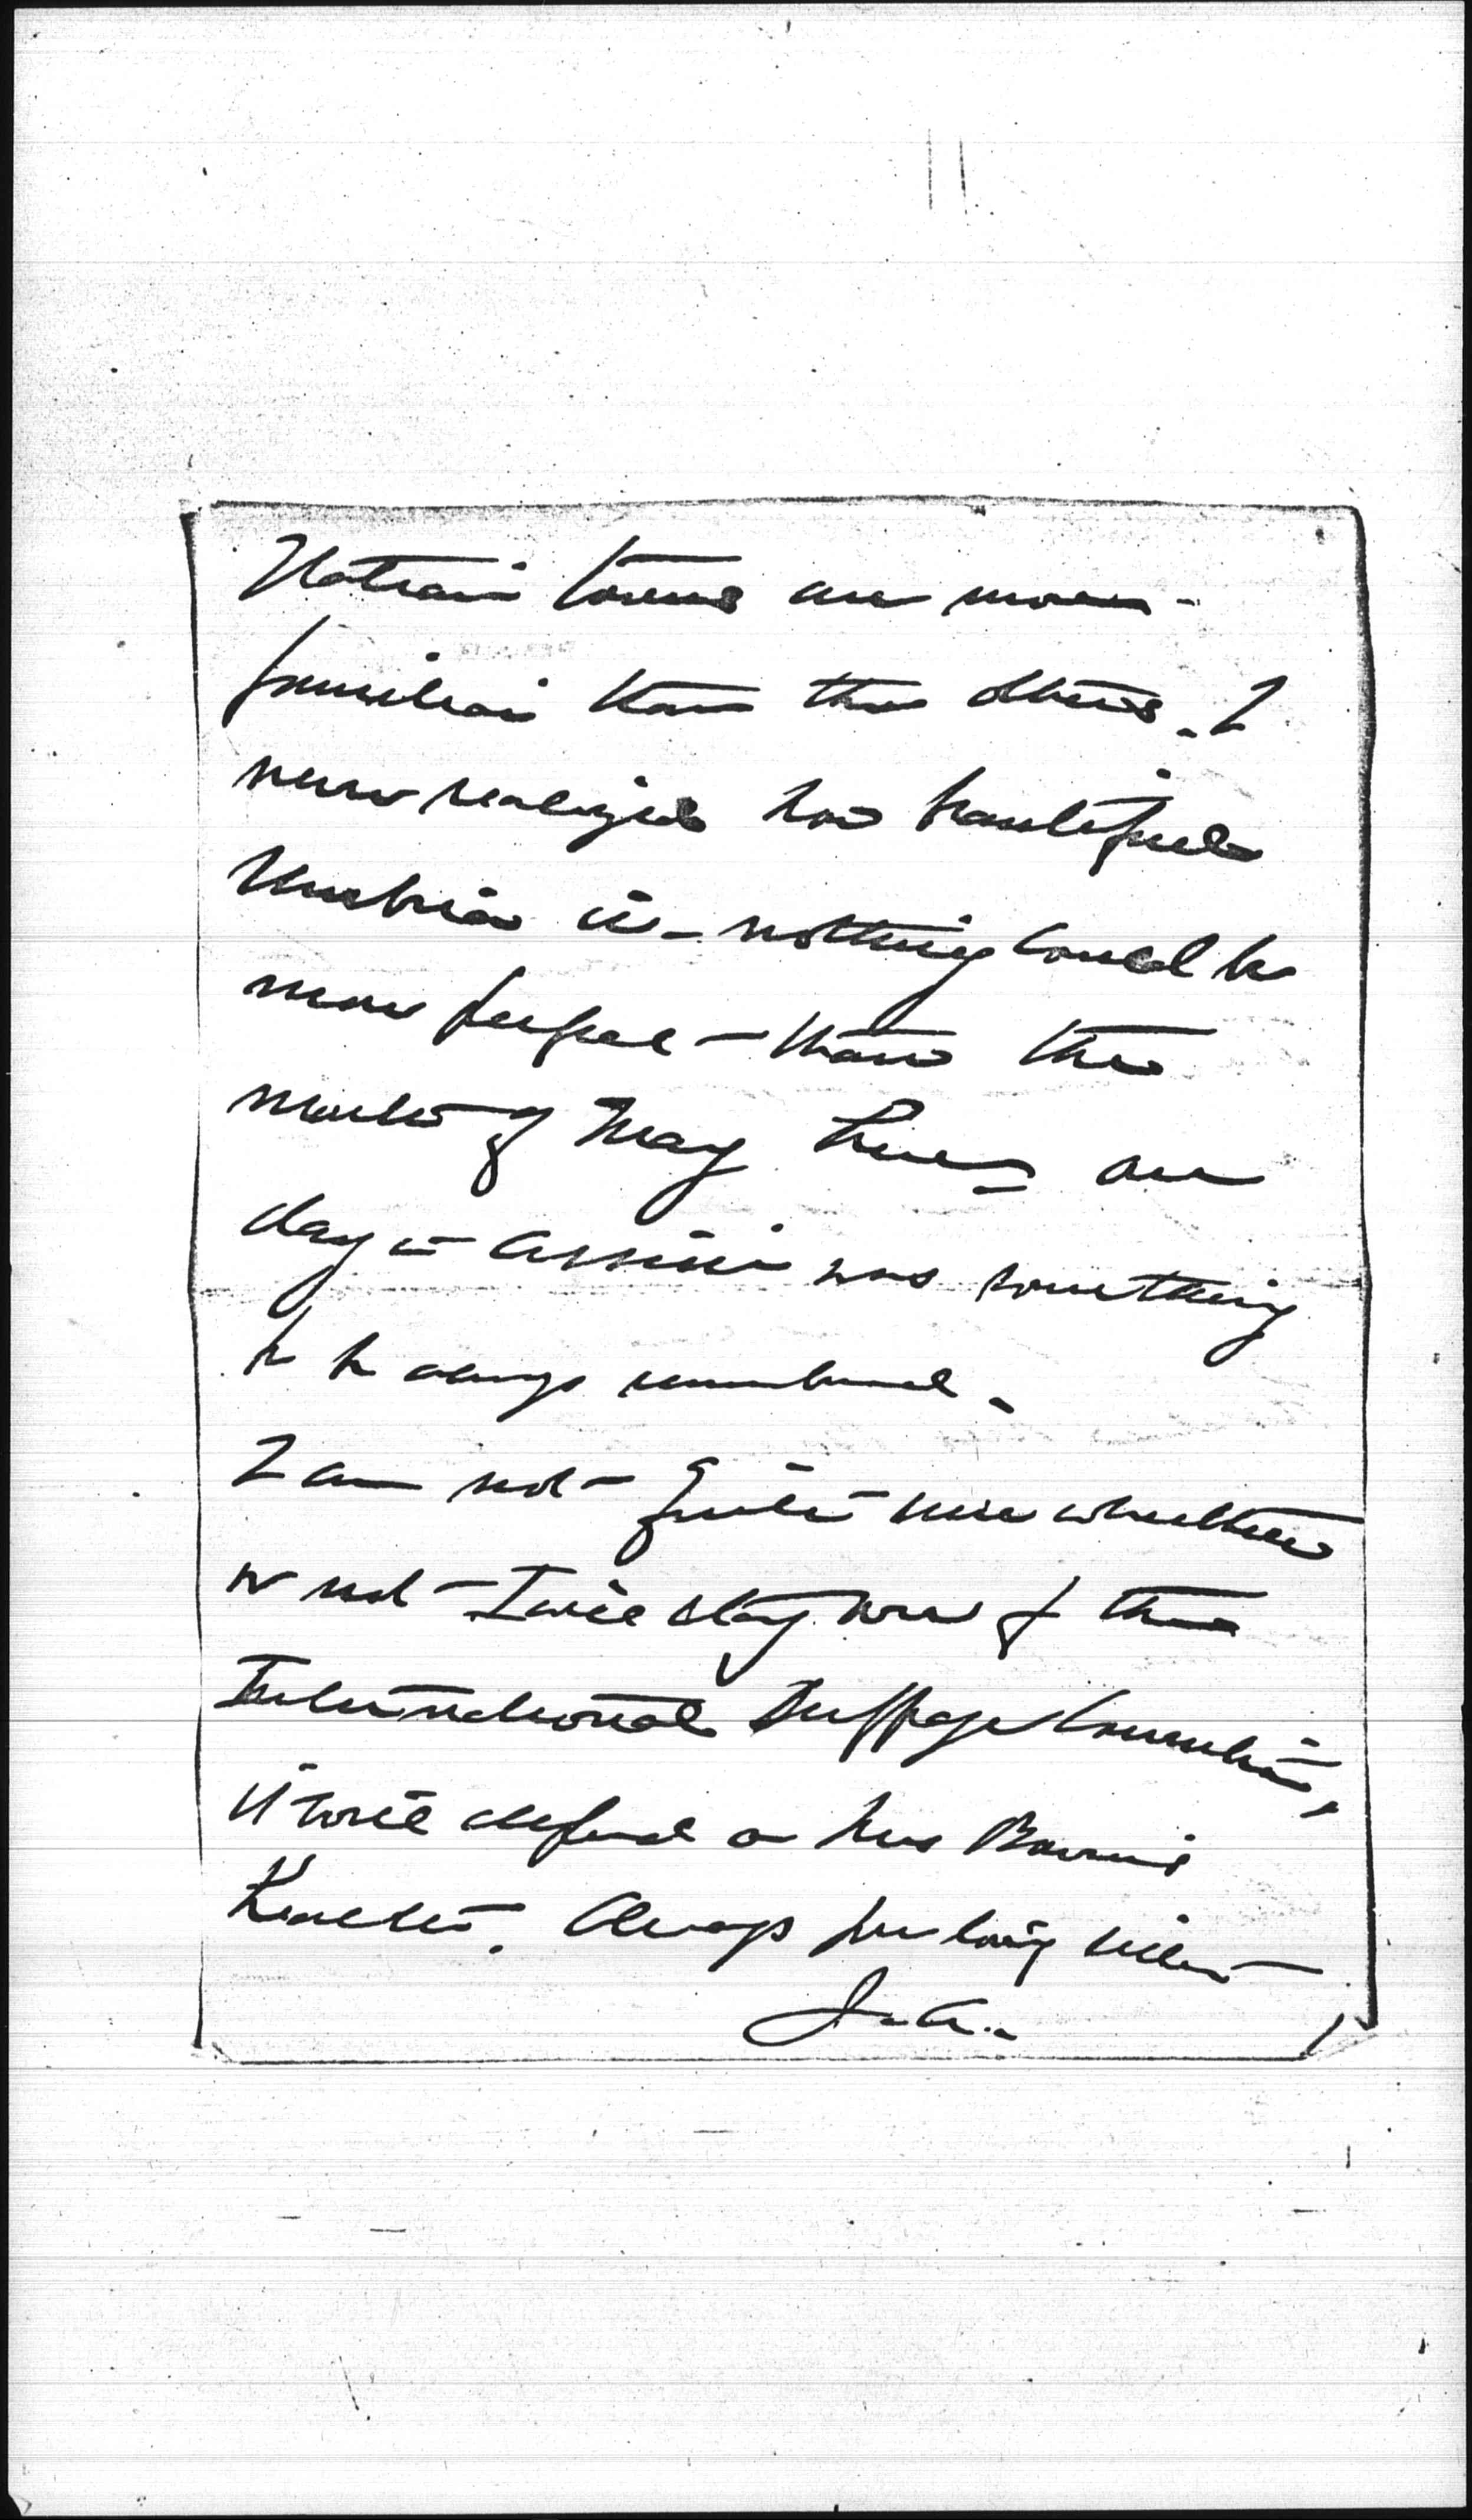 Italian towns are more
familiar than the others. I
never realized how beautiful
Umbria is – nothing could be
more perfect than the
month of May here, our
day in Assisi was something
to be always remembered.
I am not quite sure whether
or not I will stay here for the
International Suffrage Convention,
it will depend on Mrs Bowen's
health. Always your loving sister
J. A.